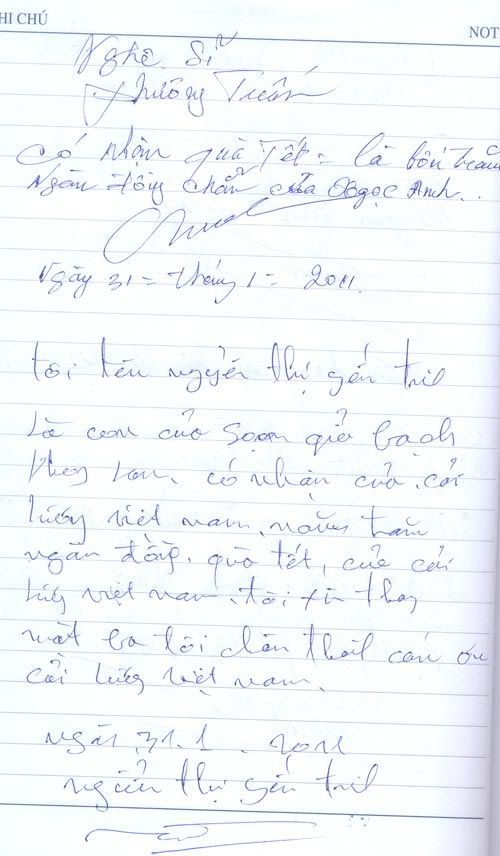 HI CHÚ
NOT
Nghệ Sĩ
Phương Tuấn
Có nhận quà Tết = là bốn trăm
Ngàn đồng chẵn của Ngọc Anh..
Ngày 31 = tháng 1 = 2011.
tôi tên nguyễn thị
Là con của Soạn giả bạch
Lan, có nhận của cải
lương việt nam, năm trăm
ngàn đồng. quà tết, của cải
lương việt nam. tôi xin thay
mặt ba tôi chân thật cám ơn
cải lương việt nam.
ngài 31.1.2011
nguyễn thị